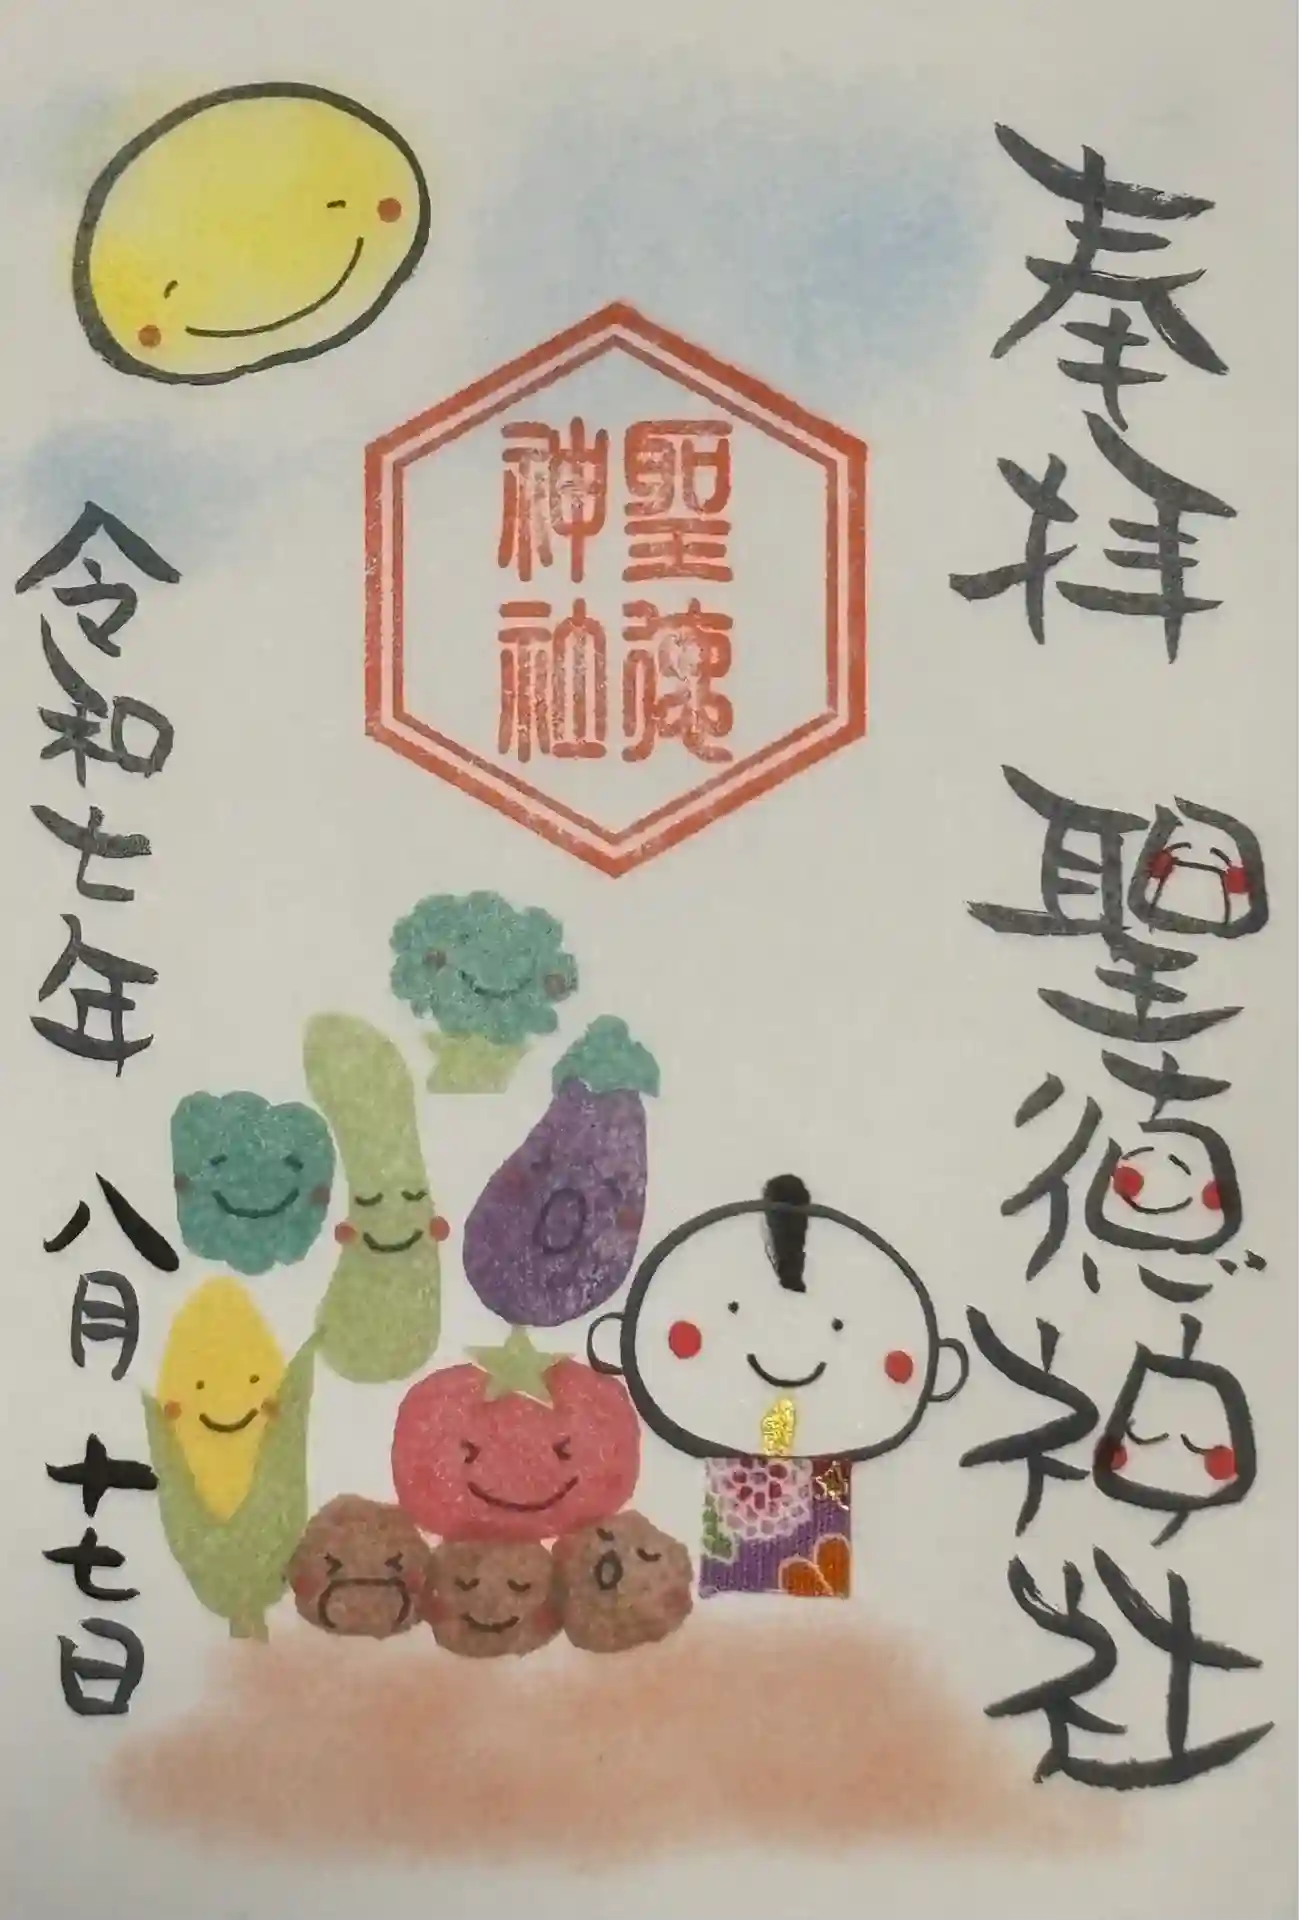 奉拝 聖徳神社
聖徳
神社
令和七年 八月十七日